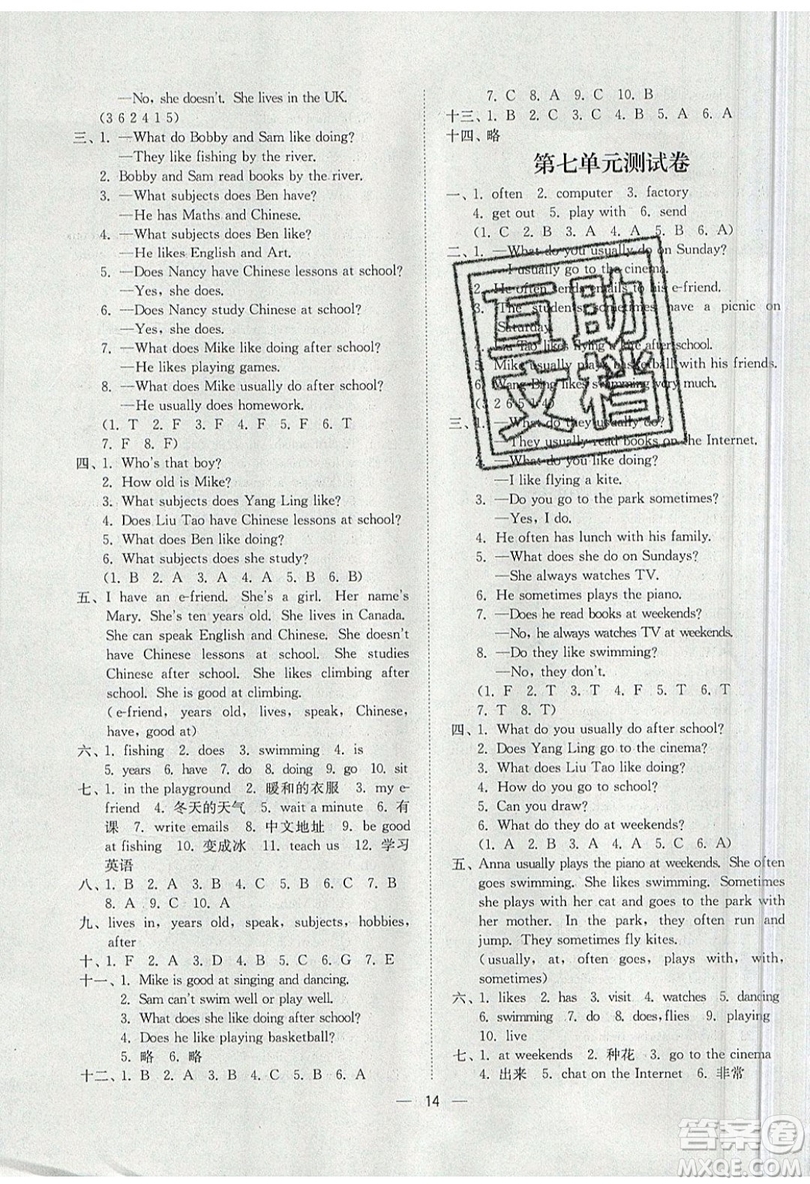 —No, she doesn't. She lives in the UK.
(3 6 2 4 1 5)
三、1. —What do Bobby and Sam like doing?
—They like fishing by the river.
2. Bobby and Sam read books by the river.
3. —What subjects does Ben have?
—He has Maths and Chinese.
4. —What subjects does Ben like?
—He likes English and Art.
5. —Does Nancy have Chinese lessons at school?
—Yes, she does.
6. —Does Nancy study Chinese at school?
—Yes, she does.
7. —What does Mike like doing after school?
—He likes playing games.
8. —What does Mike usually do after school?
—He usually does homework.
(1. T 2. F 3. F 4. F 5. F 6. T
7. F 8. F)
四、1. Who's that boy?
2. How old is Mike?
3. What subjects does Yang Ling like?
4. Does Liu Tao have Chinese lessons at school?
5. What does Ben like doing?
6. What subjects does she study?
(1. B 2. A 3. A 4. A 5. B 6. B)
五、I have an e-friend. She's a girl. Her name's
Mary. She's ten years old. She lives in Canada.
She can speak English and Chinese. She doesn't
have Chinese lessons at school. She studies
Chinese after school. She likes climbing after
school. She is good at climbing.
(e-friend, years old, lives, speak, Chinese,
have, good at)
六、1. fishing 2. does 3. swimming 4. is
5. years 6. have 7. do 8. doing 9. go 10. sit
七、1. in the playground 2. 暖和的衣服 3. my e-
friend 4. 冬天的天气 5. wait a minute 6. 有
课 7. write emails 8. 中文地址 9. be good
at fishing 10. 变成冰 11. teach us 12. 学习
英语
八、1. B 2. A 3. B 4. C 5. B 6. B 7. B
8. A 9. C 10. A
九、lives in, years old, speak, subjects, hobbies,
after
十、1. F 2. A 3. D 4. B 5. C 6. G 7. E
十一、1. Mike is good at singing and dancing.
2. Sam can't swim well or play well.
3. What does she like doing after school?
4. Does he like playing basketball?
5. 略 6. 略
十二、1. B 2. A 3. C 4. A 5. C 6. B
7. C 8. A 9. C 10. B
十三、1. B 2. C 3. B 4. B 5. A 6. A
十四、略
第七单元测试卷
一、1. often 2. computer 3. factory
4. get out 5. play with 6. send
(1. C 2. B 3. A 4. A 5. A 6. B)
二、1. —What do you usually do on Sunday?
—I usually go to the cinema.
2. He often sends emails to his e-friend.
3. The students sometimes have a picnic on
Saturday.
4. Liu Tao likes flying a kite after school.
5. Mike usually plays basketball with his friends.
6. Wang Bing likes swimming very much.
(3 2 6 5 1 4)
三、1. —What do they usually do?
—They usually read books on the Internet.
2. —What do you like doing?
—I like flying a kite.
3. —Do you go to the park sometimes?
—Yes, I do.
4. He often has lunch with his family.
5. —What does she do on Sundays?
—She always watches TV.
6. He sometimes plays the piano.
7. —Does he read books at weekends?
—No, he always watches TV at weekends.
8. —Do they like swimming?
—No, they don't.
(1. F 2. T 3. F 4. T 5. F 6. T
7. T 8. T)
四、1. What do you usually do after school?
2. Does Yang Ling go to the cinema?
3. What does Liu Tao like doing?
4. How do you go to school?
5. Can you draw?
6. What do they do at weekends?
(1. A 2. B 3. B 4. B 5. C 6. A)
五、Anna usually plays the piano at weekends. She often
goes swimming. She likes swimming. Sometimes
she plays with her cat and goes to the park with
her mother. In the park, they often run and
jump. They sometimes fly kites.
(usually, at, often, goes, plays, with, with,
sometimes)
六、1. likes 2. has 3. visit 4. watches 5. dancing
6. swimming 7. do 8. does, flies 9. playing
10. live
七、1. at weekends 2. 种花 3. go to the cinema
4. 出来 5. chat on the Internet 6. 非常
互助
文档
— 14 —
答案圈
MXQE.COM